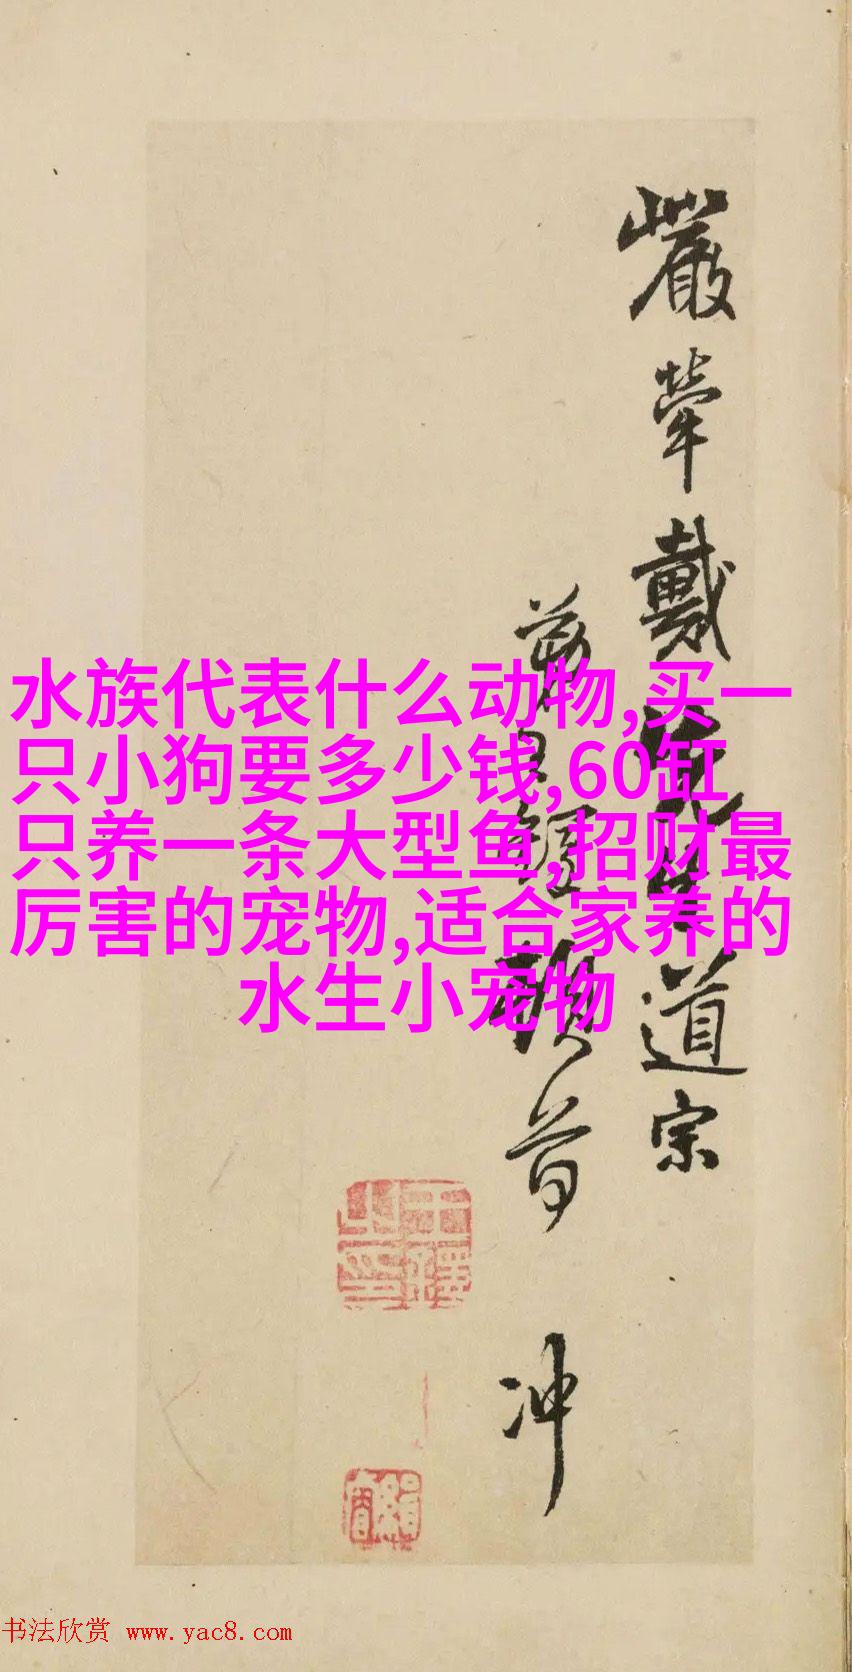 嚴犖戴
道宗
頓首
冲
水族代表什么动物,买一
只小狗要多少钱,60缸
只养一条大型鱼,招财最
厉害的宠物,适合家养的
水生小宠物
书法欣赏 www.yac8.com